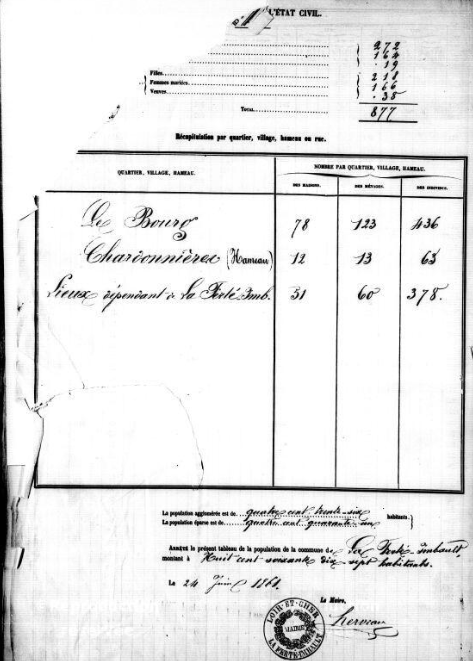 L'ÉTAT CIVIL.
272
164
19
Filles 218
Femmes mariées 166
Veuves 38
TOTAL 877
Récapitulation par quartier, village, hameau ou rue.
QUARTIER, VILLAGE, HAMEAU. NOMBRE PAR QUARTIER, VILLAGE, HAMEAU.
DES MAISONS. DES MÉNAGES. DES INDIVIDUS.
Le Bourg 78 123 436
Chardonnières (Hameau) 12 13 63
Lieux dépendant de La Ferté Imb. 51 60 378.
La population agglomérée est de quatre cent trente-six habitants.
La population éparse est de quatre cent quarante un
ARRÊTÉ le présent tableau de la population de la commune de La Ferté Imbault,
montant à Huit cent soixante dix sept habitants.
Le 24 Juin 1861.
Le Maire,
Herveau
LOIR-ET-CHER
MAIRIE
LA FERTÉ-IMBAULT